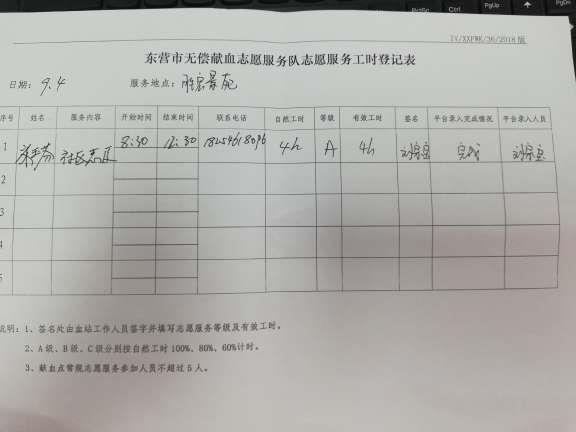 TY/XXFWK/36/2018版
东营市无偿献血志愿服务队志愿服务工时登记表
日期：9.4 服务地点：
序号 姓名 服务内容 开始时间 结束时间 联系电话 自然工时 等级 有效工时 签名 平台录入完成情况 平台录入人员
1 社区志正 8:30 12:30 18254618096 4h A 4h 完成
2
3
4
5
说明：1、签名处由血站工作人员签字并填写志愿服务等级及有效工时。
2、A级、B级、C级分别按自然工时100%、80%、60%计时。
3、献血点常规志愿服务参加人员不超过5人。